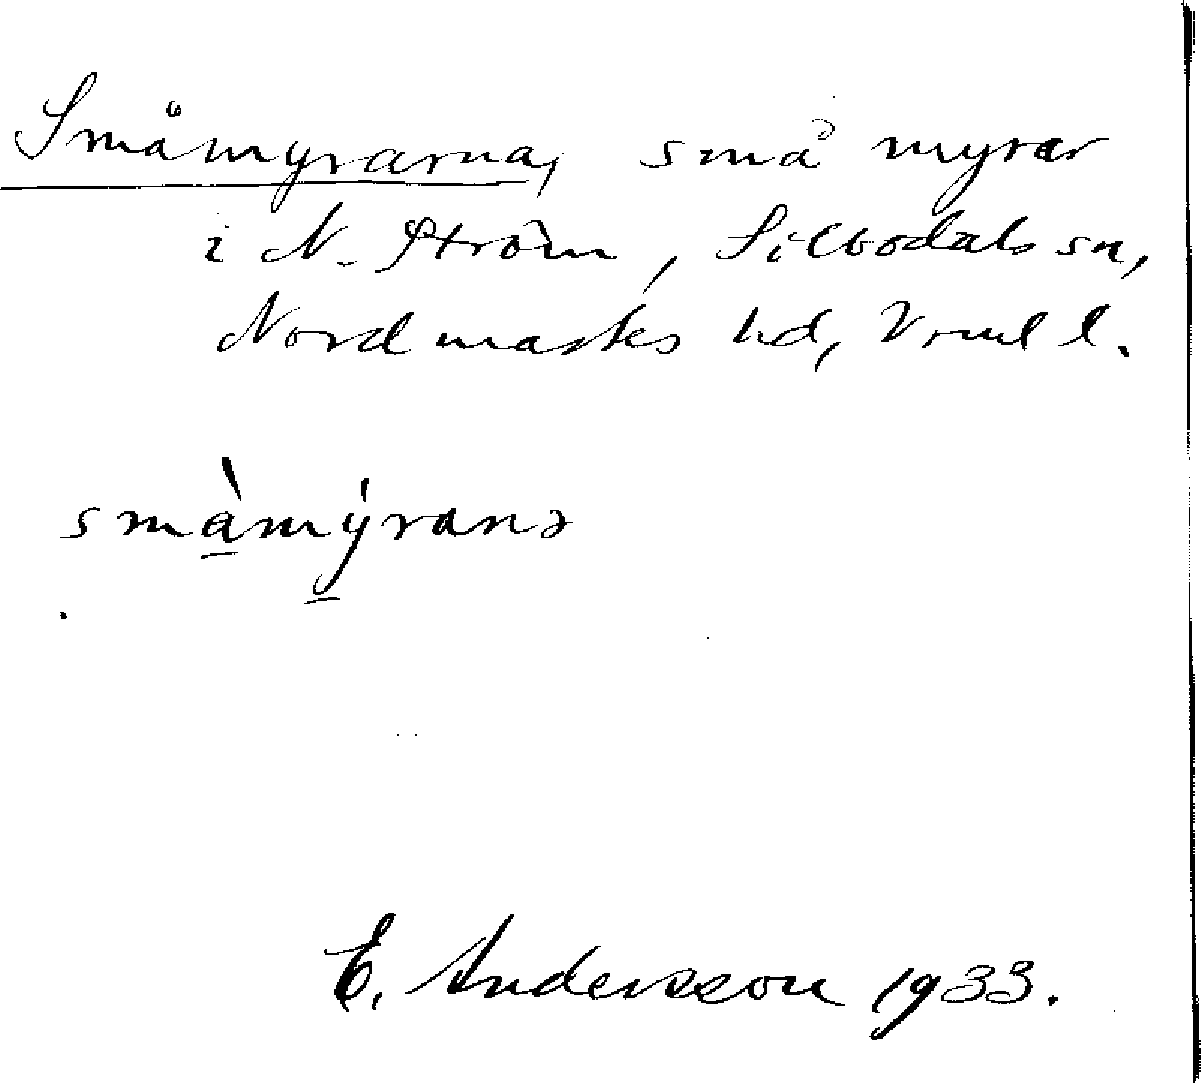 Småmyrarna, små myrar
i N. Ström, Silbodals sn,
Nordmarks hd, Vrml l.
småmỳ̱ranə
E. Andersson 1933.